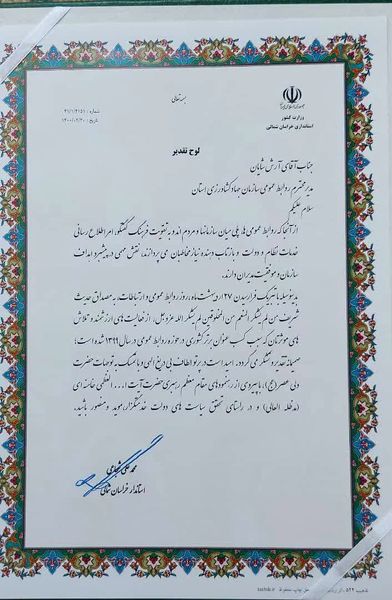 بسمه تعالی
وزارت کشور
استانداری خراسان شمالی
شماره : ۴۱/۱/۴۱۵۱
تاریخ : ۱۴۰۰/۰۲/۲۰
لوح تقدیر
جناب آقای آرش شایان
مدیر محترم روابط عمومی سازمان جهاد کشاورزی استان
سلام علیکم
از آنجا که روابط عمومی ها، پلی میان سازمانها و مردم اند و به تقویت فرهنگ گفتگو، امر اطلاع رسانی
خدمات نظام و دولت و بازتاب دیده و نیاز مخاطبان می پردازند، نقش مهمی در پیشبرد اهداف
سازمان و موفقیت مدیران دارند.
بدینوسیله با تبریک فرارسیدن ۲۷ اردیبهشت ماه روز روابط عمومی و ارتباطات، به مصداق حدیث
شریف من لم یشکر المنعم من المخلوقین لم یشکر الله عزوجل، از فعالیت های ارزشمند و تلاش
های موثرتان که سبب کسب عنوان برتر کشوری در حوزه روابط عمومی در سال ۱۳۹۹ شده است؛
صمیمانه تقدیر و تشکر می گردد. امید است در پرتو الطاف بی دریغ الهی و با تمسک به توجهات حضرت
ولی عصر (عج)، با پیروی از رهنمودهای مقام معظم رهبری حضرت آیت ا... العظمی خامنه ای
(مدظله العالی) و در راستای تحقق سیاست های دولت خدمتگزار، موید و منصور باشید.
محمد علی شجاعی
استاندار خراسان شمالی
tazhib.ir